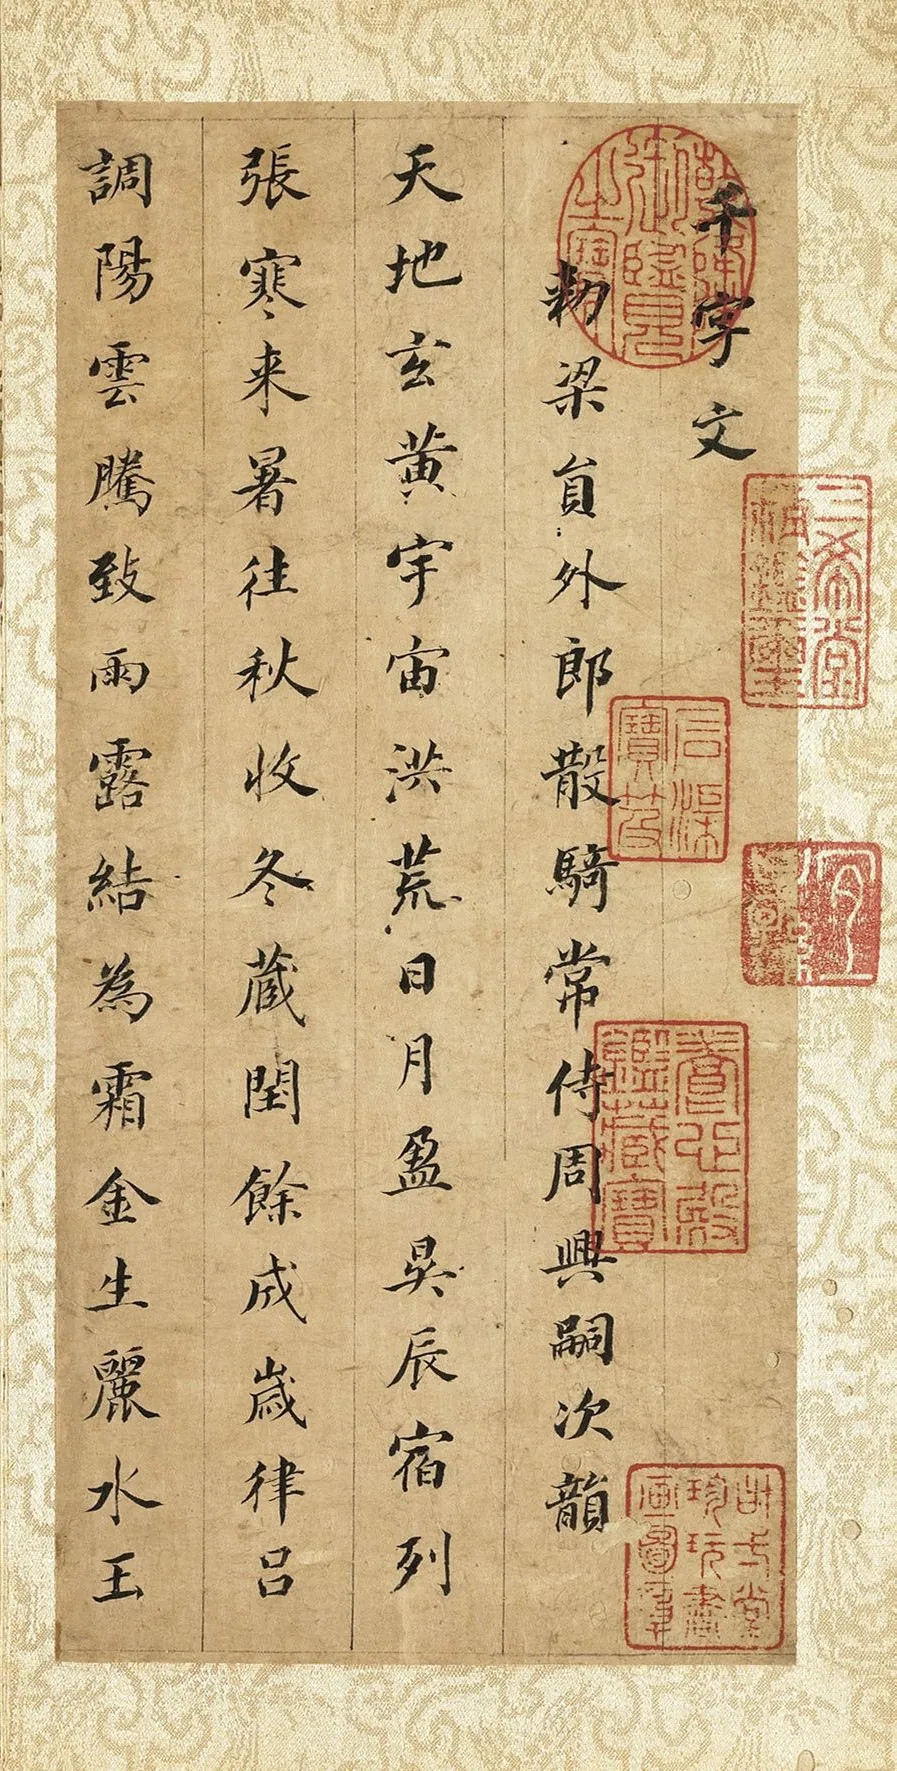 千字文
勑梁員外郎散騎常侍周興嗣次韻
天地玄黃宇宙洪荒日月盈昃辰宿列
張寒来暑往秋收冬蔵閏餘成歲律呂
調陽雲騰致雨露結為霜金生麗水玉
乾隆御覽之寶
三希堂精鑑璽
石渠寶笈
宜子孫
養心殿鑑藏寶